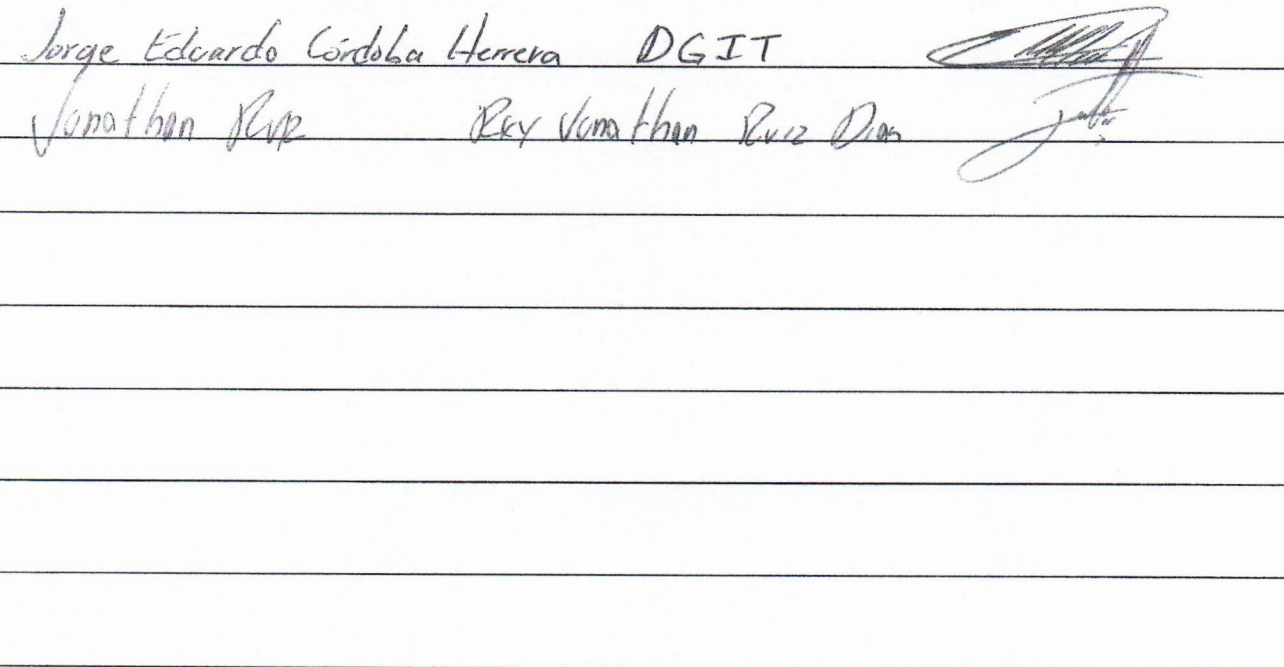 Jorge Eduardo Córdoba Herrera DGIT
Jonathan Ruiz Rey Jonathan Ruiz Dias